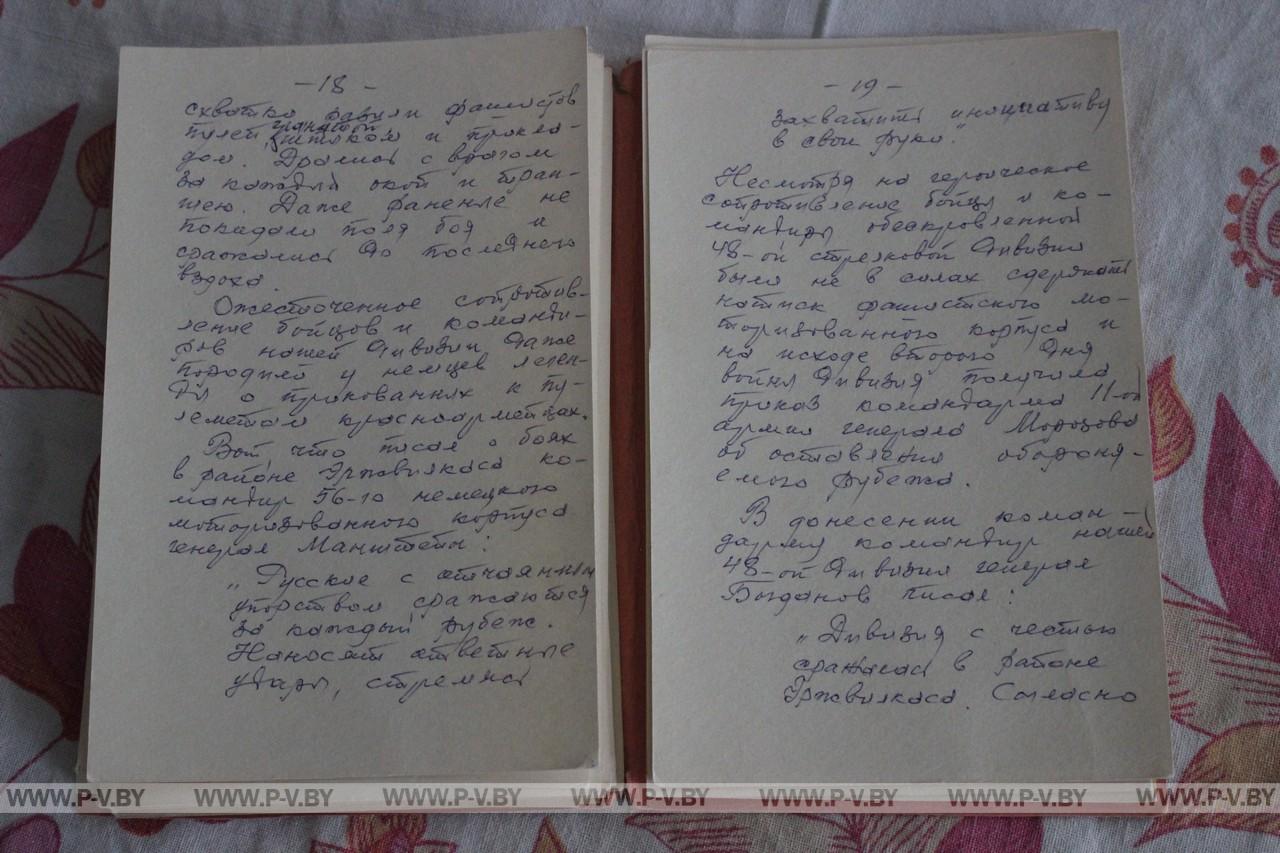 - 18 -
схватке разили фашистов
пулей, гранатой
штыком и прикла-
дом. Дрались с врагом
за каждый окоп и тран-
шею. Даже раненые не
покидали поля боя и
сражались до последнего
вздоха.
Ожесточенное сопротив-
ление бойцов и команди-
ров нашей дивизии даже
породили у немцев леген-
ды о прикованных к пу-
леметам красноармейцах.
Вот что писал о боях
в районе Эржвилкаса ко-
мандир 56-го немецкого
моторизованного корпуса
генерал Манштейн:
„Русские с отчаянным
упорством сражаются
за каждый рубеж.
Наносят ответные
удары, стремясь
- 19 -
захватить инициативу
в свои руки".
Несмотря на героическое
сопротивление бойцы и ко-
мандиры обескровленной
48-ой стрелковой дивизии
были не в силах сдержать
натиск фашистского мо-
торизованного корпуса и
на исходе второго дня
войны дивизия получила
приказ командарма 11-ой
армии генерала Морозова
об оставлении обороня-
емого рубежа.
В донесении коман-
дарму командир нашей
48-ой дивизии генерал
Богданов писал:
„Дивизия с честью
сражалась в районе
Эржвилкаса. Согласно
WWW.P-V.BY WWW.P-V.BY WWW.P-V.BY WWW.P-V.BY WWW.P-V.BY WWW.P-V.BY WWW.P-V.BY